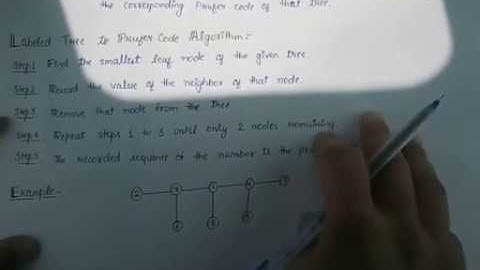 the corresponding Prufer code of that tree.
Labeled Tree to Prufer Code Algorithm:-
Step 1 Find the smallest leaf node of the given tree.
Step 2 Record the value of the neighbor of that node.
Step 3 Remove that node from the tree
Step 4 Repeat steps 1 to 3 until only 2 nodes remaining
Step 5 The recorded sequence of the number is the
Example:-
2